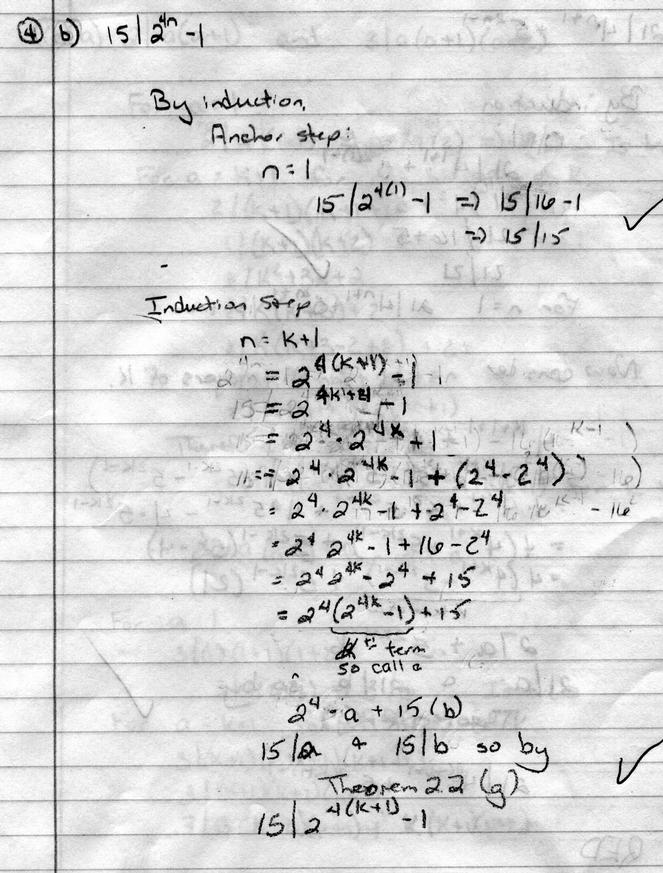 ④ b) 15 | 2^{4n} - 1
By induction,
Anchor step:
n = 1
15 | 2^{4(1)} - 1 => 15 | 16 - 1
=> 15 | 15
Induction Step
n = k+1
= 2^{4(k+1)} - 1
= 2^{4k+4} - 1
= 2^4 · 2^{4k} + 1
= 2^4 · 2^{4k} - 1 + (2^4 - 2^4)
= 2^4 · 2^{4k} - 1 + 2^4 - 2^4
= 2^4 2^{4k} - 1 + 16 - 2^4
= 2^4 2^{4k} - 2^4 + 15
= 2^4 (2^{4k} - 1) + 15
k^{th} term
so call a
2^4 · a + 15 (b)
15 | a & 15 | b so by
Theorem 2.2 (g)
15 | 2^{4(k+1)} - 1